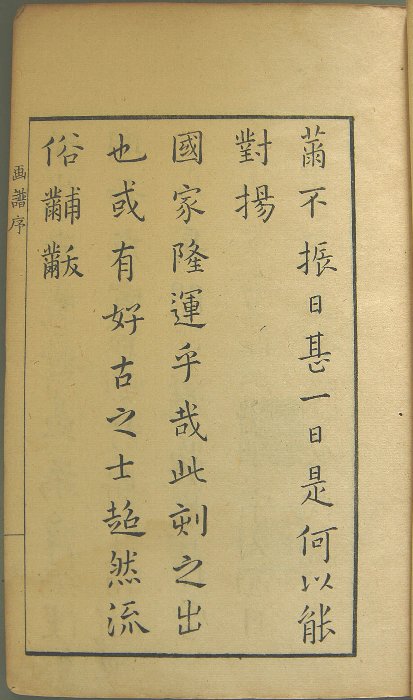 薾不振日甚一日是何以能
對揚
國家隆運乎哉此刻之出
也或有好古之士超然流
俗黼黻
画譜序